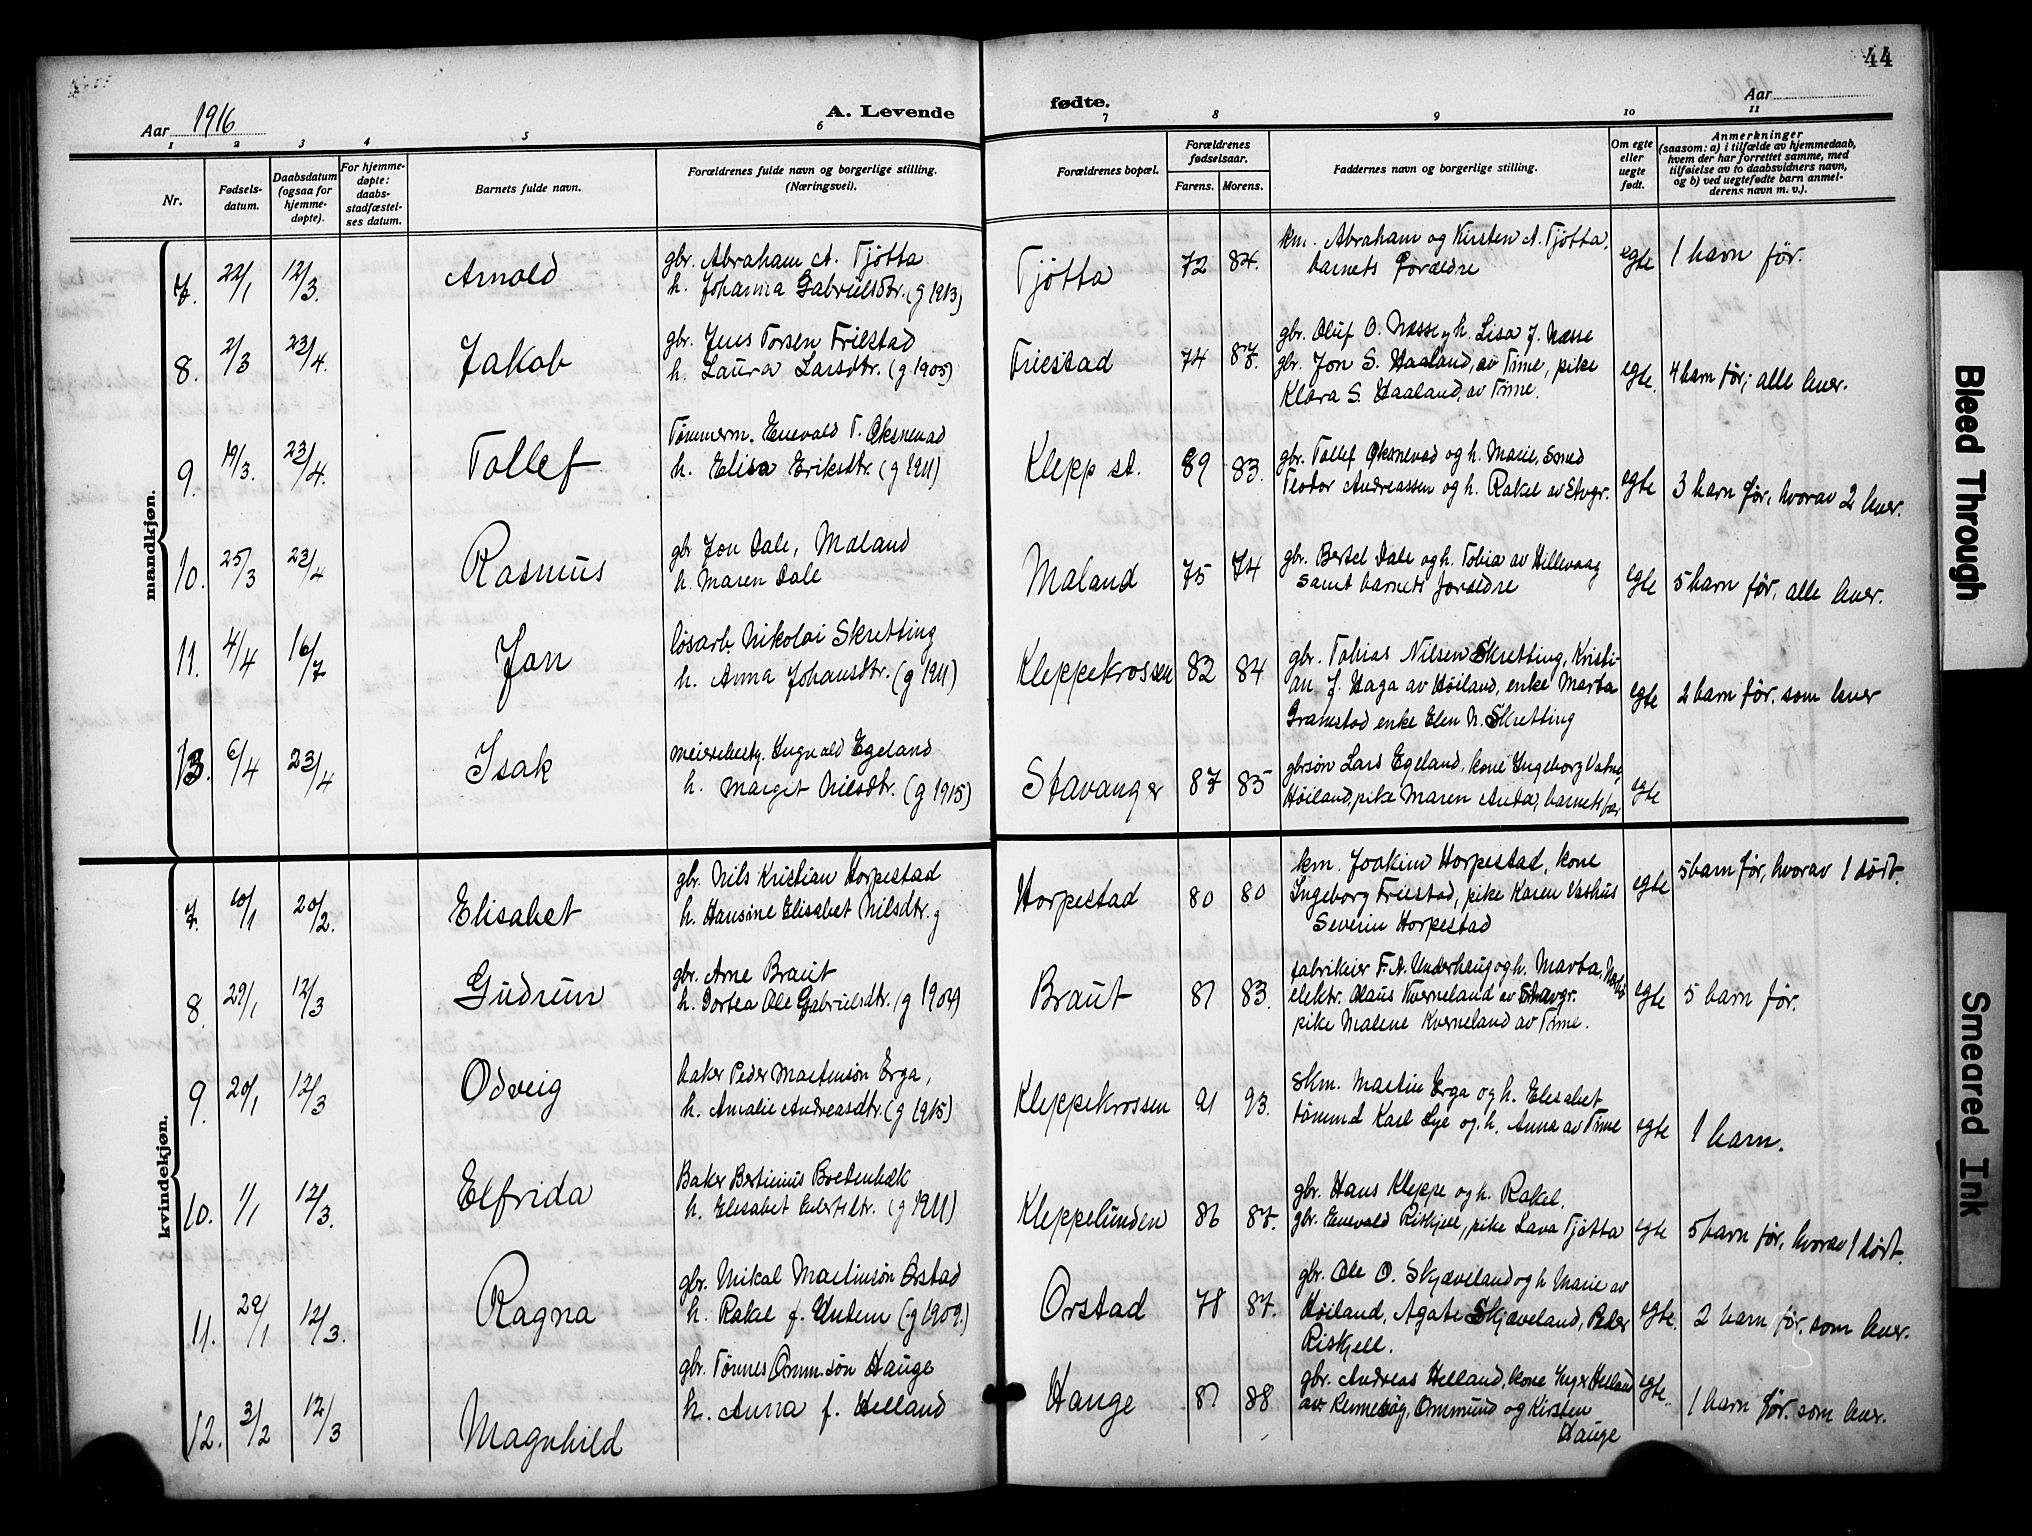 44
Aar 1916
A. Levende
fødte.
Aar
1 2 3 4 5 6 7 8 9 10 11
Nr.
Fødsels-
datum.
Daabsdatum
(ogsaa for
hjemme-
døpte).
For hjemme-
døpte:
daabs-
stadfæstel-
ses datum.
Barnets fulde navn.
Forældrenes fulde navn og borgerlige stilling.
(Næringsvei).
Forældrenes bopæl.
Forældrenes
fødselsaar.
Farens. Morens.
Faddernes navn og borgerlige stilling.
Om egte
eller
uegte
født.
Anmerkninger
(saasom: a) i tilfælde av hjemmedaab,
hvem der har forrettet samme, med
tilføielse av to daabsvidners navn,
og b) ved uegtefødte barn anmel-
derens navn m. v.).
mandkjøn.
7. 22/1 12/3. Arnold
gbr. Abraham A. Tjøtta
h. Johanna Gabrielsdtr. (g 1913)
Tjøtta 72 84.
km. Abraham og Kirsten A. Tjøtta,
barnets forældre
egte 1 barn før.
8. 2/3 23/4. Jakob
gbr. Jens Torsen Friestad
h. Laura Larsdtr. (g 1905)
Friestad 74 87.
gbr. Oluf O. Næsse og h. Lisa J. Næsse
gbr. Jon S. Haaland, av Time, pike
Klara S. Haaland, av Time.
egte. 4 barn før; alle lever.
9. 19/3. 23/4. Tollef
Tømmerm. Enevald T. Øksnevad
h. Elisa Eriksdtr. (g 1911)
Klepp st. 89 83.
gbr. Tollef Øksnevad og h. Marie, smed
Teodor Andreassen og h. Rakel av Stvgr.
egte 3 barn før, hvorav 2 lever.
10. 25/3 23/4 Rasmus
gbr Jon Dale, Maland
h. Maren Dale
Maland 75 74
gbr. Bertel Dale og h. Tobia av Hillevaag
samt barnets forældre
egte 5 barn før, alle lever.
11. 4/4 16/7 Jan
løsarb. Nikolai Skretting
h. Anna Johansdtr. (g 1911)
Kleppekrossen 82 84
gbr. Tobias Nilsen Skretting, Kristi-
an J. Haga av Høiland, enke Marta
Gramstad enke Elen N. Skretting
egte 2 barn før. som lever
13. 6/4 23/4 Isak
meieribesty. Ingvald Egeland
h. Margit Nilsdtr. (g 1915)
Stavanger 87 85
gbrsøn Lars Egeland, kone Ingeborg Vatne
Høiland, pike Maren Anda, barnets far
egte
kvindekjøn.
7. 10/1 20/2. Elisabet
gbr. Nils Kristian Horpestad
h. Hansine Elisabet Nilsdtr. g
Horpestad 80 80
km. Joakim Horpestad, kone
Ingeborg Friestad, pike Karen Vasshus
Severin Horpestad
egte 5 barn før, hvorav 1 dødt.
8. 29/1 12/3 Gudrun
gbr. Arne Braut
h. Dortea Ole Gabrielsdtr. (g 1904)
Braut 81 83.
fabrikeier F. A. Underhaug og h. Marta,
elektr. Olaus Kverneland av Stavgr.
pike Malene Kverneland av Time.
egte 5 barn før.
9. 20/1 12/3 Odveig
baker Peder Martinsøn Erga,
h. Amalie Andreasdtr. (g 1915)
Kleppekrossen 91 93.
skm. Martin Erga og h. Elisabet
tømmmd Karl Lye og h. Anna av Time
egte 1 barn.
10. 1/1 12/3. Elfrida
Baker Bertinius Bredenbæk
h. Elisabet Evertsdtr. (g 1911)
Kleppelunden 86 87.
gbr. Hans Kleppe og h. Rakel.
gbr. Enevald Riskjell, pike Lava Tjøtta
egte 5 barn før, hvorav 1 dødt.
11. 29/1 12/3. Ragna
gbr. Mikal Martinsøn Orstad
h. Rakel f. Undem (g 1909.)
Orstad 78 87.
gbr. Ole O. Skjæveland og h Marie av
Høiland, Agate Skjæveland, Peder
Riskjell.
egte. 2 barn før. som lever.
12. 3/2 12/3 Magnhild
gbr. Tønnes Omm.søn Hauge
h. Anna f. Helland
Hauge 81 88
gbr. Andreas Helland, kone Inger Helland
av Rennesøy, Ommund og Kirsten
Hauge
egte. 1 barn før. som lever.
Bleed Through
Smeared Ink